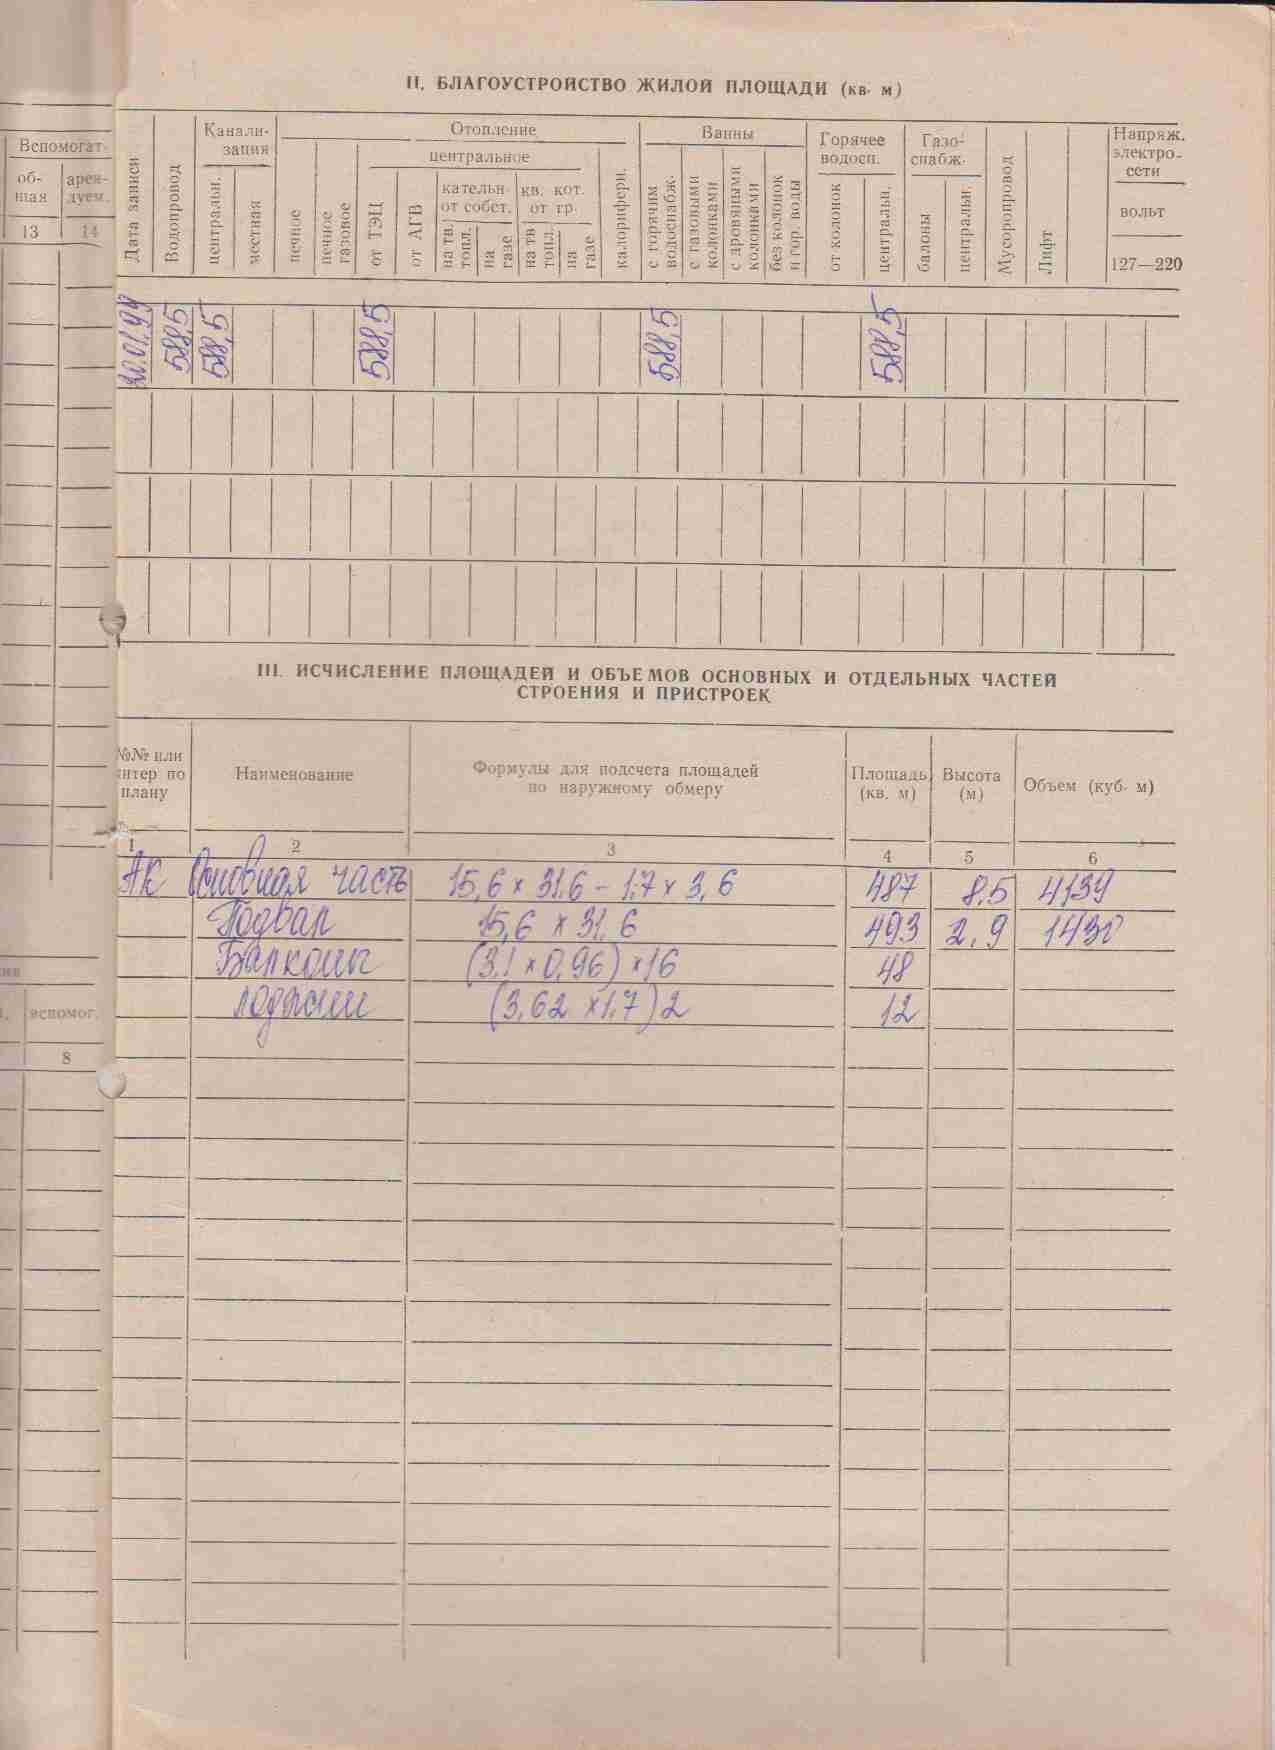 II. БЛАГОУСТРОЙСТВО ЖИЛОЙ ПЛОЩАДИ (кв. м)
Вспомогат-
об-
щая
арен-
дуем.
13 14
Дата записи
Водопровод
Канали-
зация
центральн.
местная
Отопление
печное
печное
газовое
центральное
от ТЭЦ
от АГВ
кательн.
от собст.
на тв.
топл.
на
газе
кв. кот.
от гр.
на тв.
топл.
на
газе
калорифери.
Ванны
с горячим
водоснабж.
с газовыми
колонками
с дровяными
колонками
без колонок
и гор. воды
Горячее
водосп.
от колонок
централын.
Газо-
снабж.
балоны
центральн.
Мусоропровод
Лифт
Напряж.
электро-
сети
вольт
127—220
20.01.99 588,5 588,5 588,5 588,5 588,5
III. ИСЧИСЛЕНИЕ ПЛОЩАДЕЙ И ОБЪЕМОВ ОСНОВНЫХ И ОТДЕЛЬНЫХ ЧАСТЕЙ
СТРОЕНИЯ И ПРИСТРОЕК
№№ или
литер по
плану
Наименование
Формулы для подсчета площадей
по наружному обмеру
Площадь
(кв. м)
Высота
(м)
Объем (куб. м)
1 2 3 4 5 6
АК Основная часть 15,6 × 31,6 – 1,7 × 3,6 487 8,5 4139
Подвал 15,6 × 31,6 493 2,9 1430
Балконы (3,1 × 0,96) × 16 48
лоджии (3,62 × 1,7) 2 12
вспомог.
8